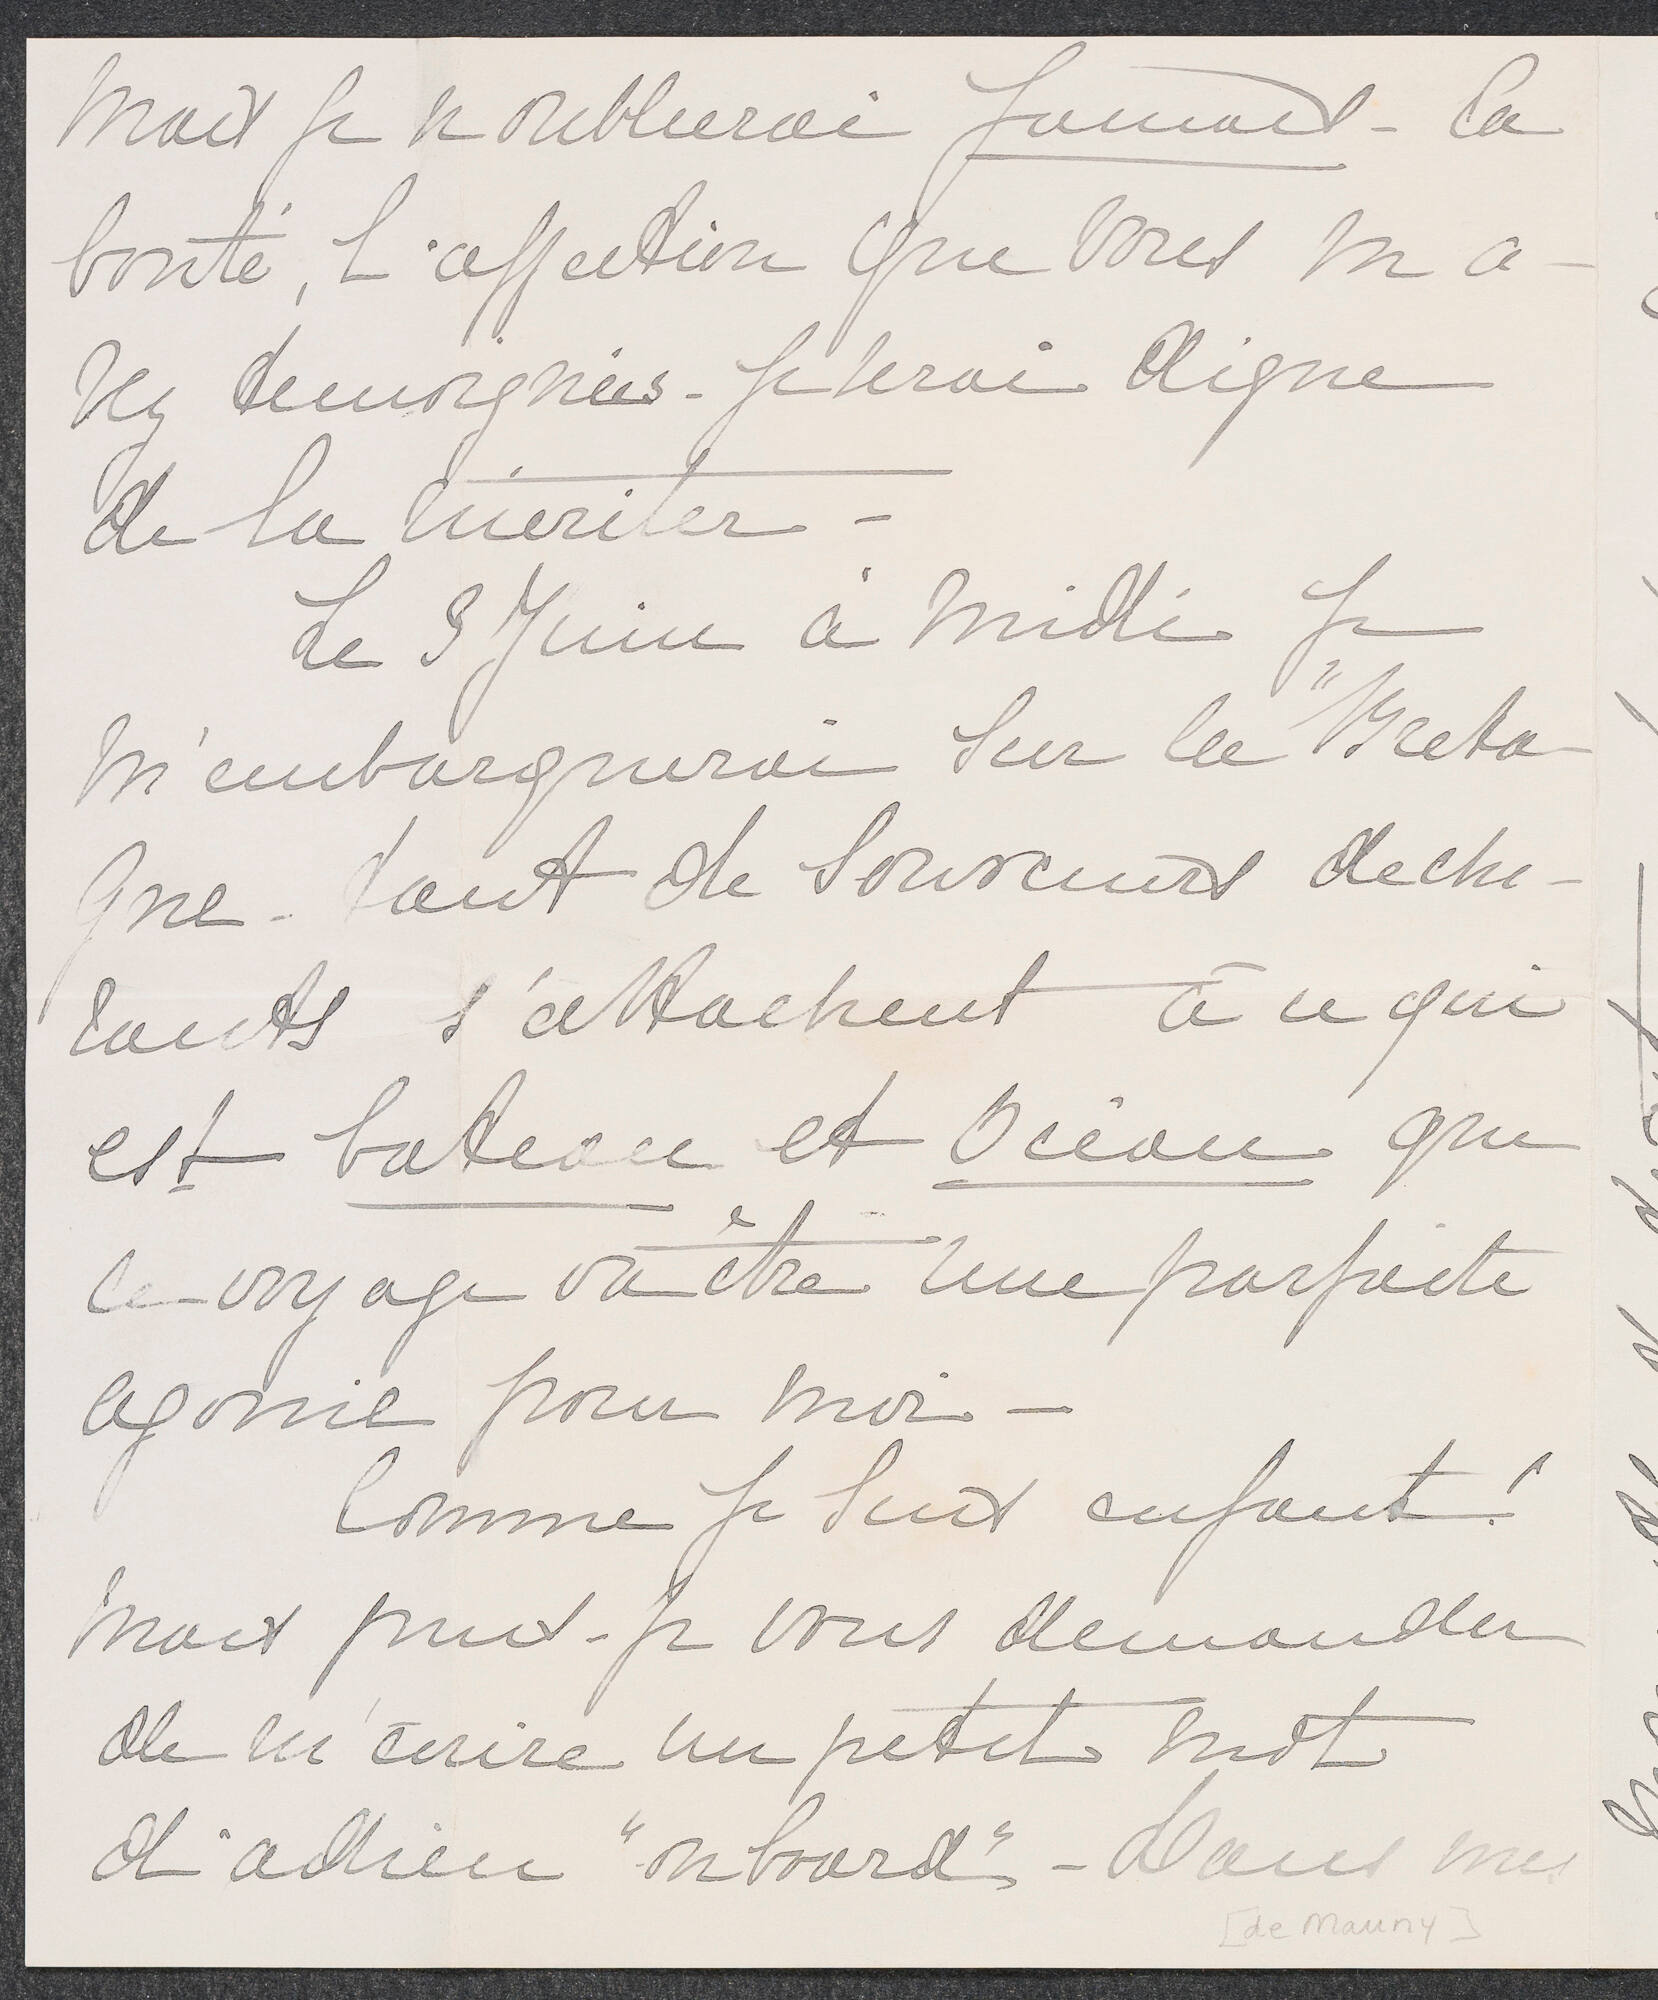 mais je n oublierai jamais - la
bonté, l'affection que vous m a-
vez temoignées - je serai digne
de la mériter -
Le 3 Juin à midi je
m'embarquerai sur la "Breta
gne - tant de souvenirs dechi-
rants s'attachent à ce qui
est bateau et Océan que
le voyage va être une parfaite
agonie pour moi -
Comme je suis enfant!
mais puis-je vous demander
de m'écrire un petit mot
d'adieu "on board" - Dans mes
[de Mauny]